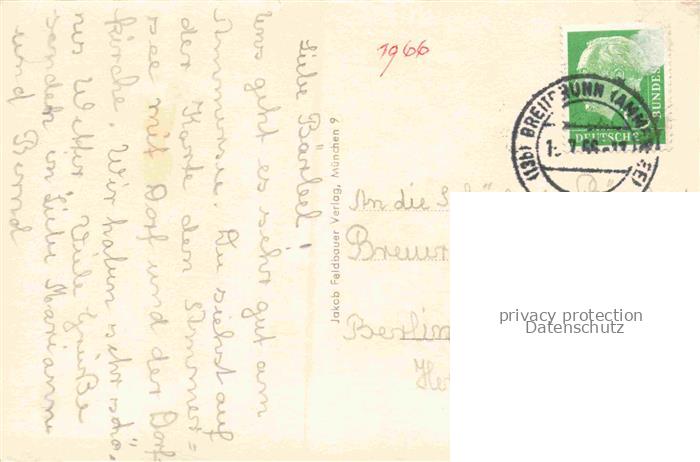 Liebe Bärbel!
uns geht es sehr gut am
Ammersee. Du siehst auf
der Karte den Ammer=
see mit Dorf und der Dorf-
kirche. Wir haben sehr schö-
nes Wetter. Viele Grüße
senden in Liebe Marianne
und Bernd
Jakob Feldbauer Verlag, München 9
1966
DEUTSCHE
BUNDES
(13b) BREITBRUNN (AMMERSEE)
An die
Berlin
privacy protection
Datenschutz